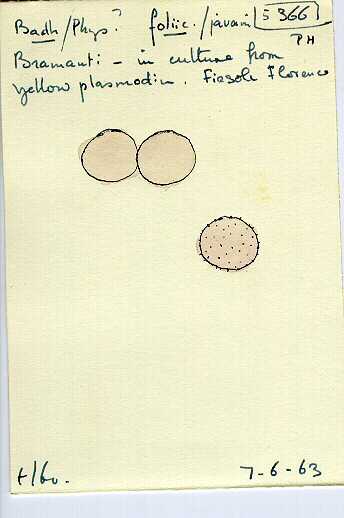 Badh/Phys? foliic./javani 5 366
PH
Bramanti - in culture from
yellow plasmodium. Fiesole Florence
7-6-63